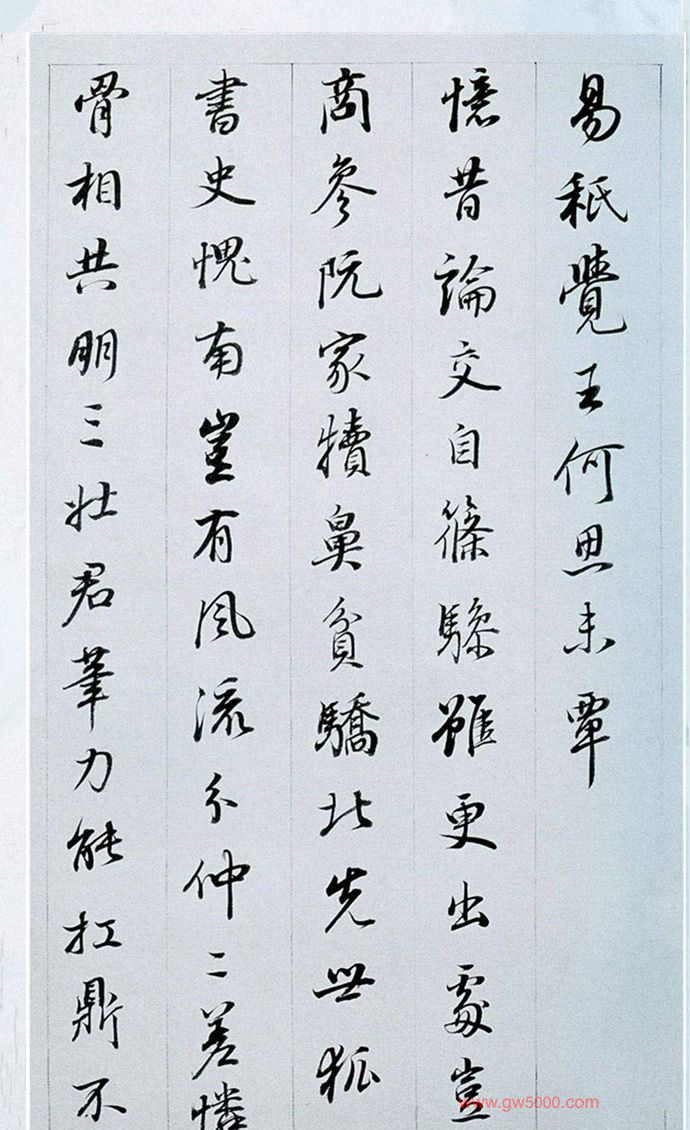 易秖覺王何思未覃
憶昔論交自篠驂雖更出處豈
商參阮家犢鼻貧驕北先世狐
書史愧南豈有風流分仲二差憐
骨相共朋三壯君筆力能扛鼎不
www.gw5000.com